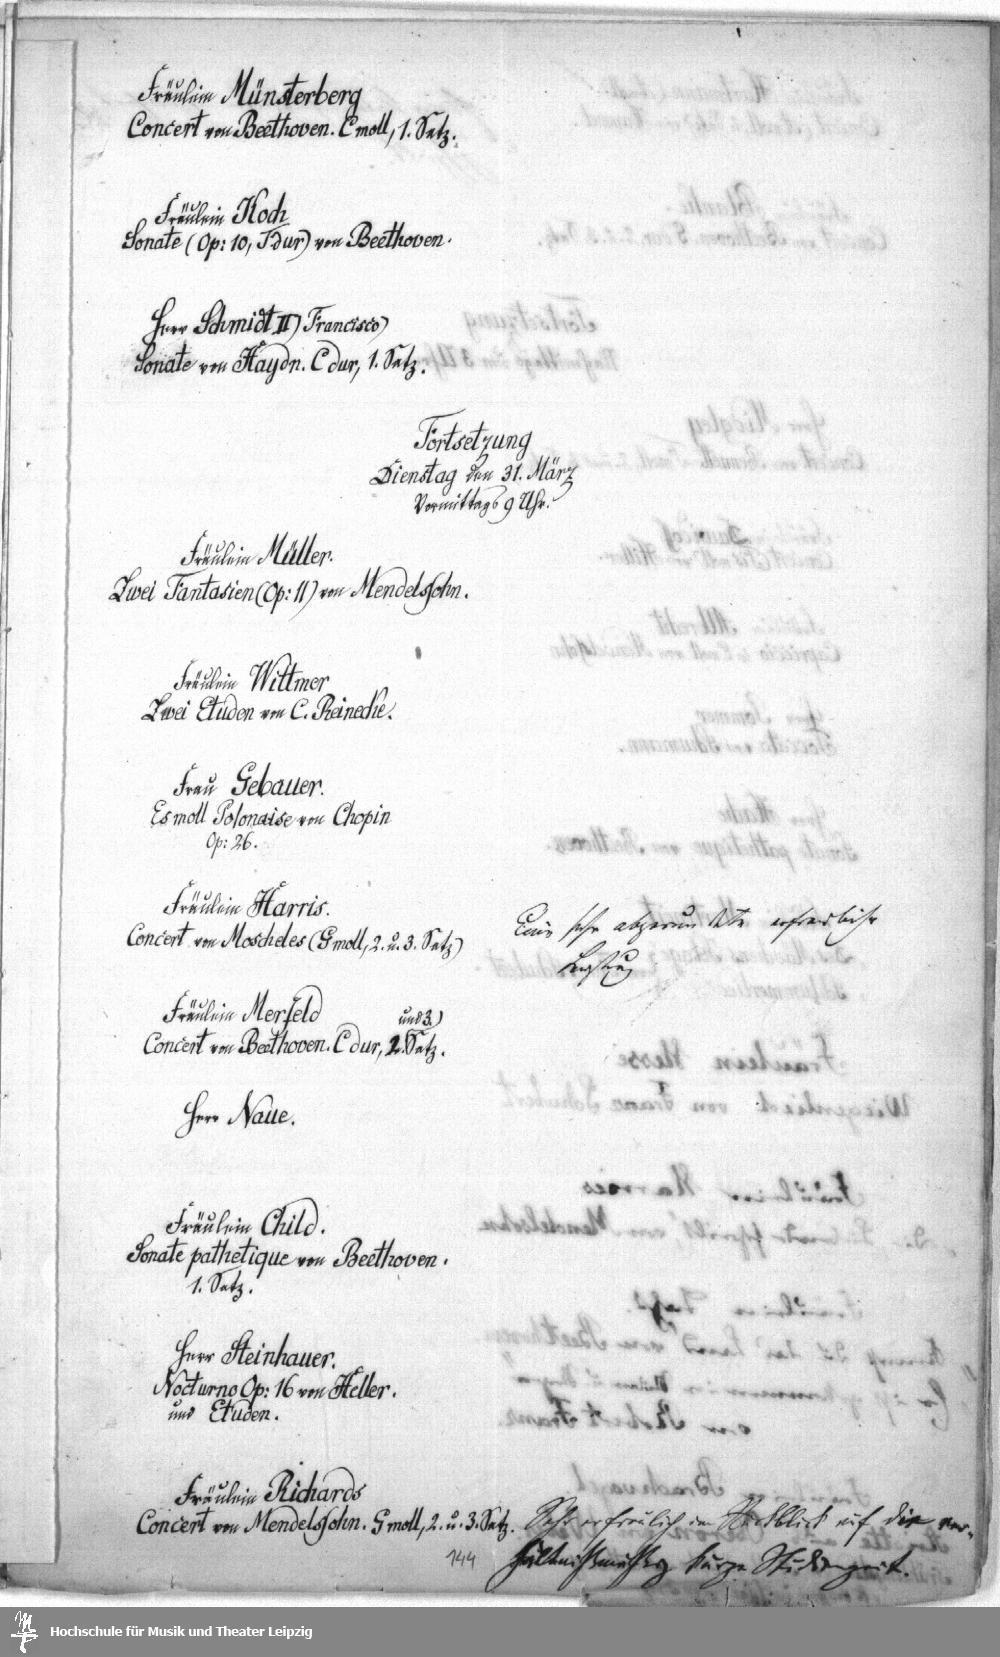 Fräulein Münsterberg
Concert von Beethoven. C moll, 1. Satz.
Fräulein Koch
Sonate (Op: 10, F dur) von Beethoven.
Herr Schmidt II) Francisco)
Sonate von Haydn. C dur, 1. Satz.
Fortsetzung
Dienstag den 31. März
Vormittags 9 Uhr.
Fräulein Müller.
Zwei Fantasien (Op: 11) von Mendelssohn.
Fräulein Wittmer
Zwei Etuden von C. Reinecke.
Frau Gebauer.
Es moll Polonaise von Chopin
Op: 26.
Fräulein Harris.
Concert von Moscheles (G moll, 2. u. 3. Satz)
Eine sehr abgerundete erfreuliche
Leistung
Fräulein Merfeld
und 3.)
Concert von Beethoven. C dur, 2. Satz.
Herr Naue.
Fräulein Child.
Sonate pathetique von Beethoven.
1. Satz.
Herr Steinhauer.
Nocturno Op: 16 von Heller.
und Etuden.
Fräulein Richards
Concert von Mendelssohn. G moll, 2. u. 3. Satz.
Sehr erfreulich im Rückblick auf die ver-
hältnißmäßig kurze Studienzeit.
144
Hochschule für Musik und Theater Leipzig